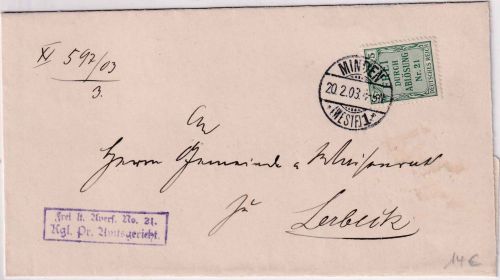 XI 592/03
3.
FREI DURCH ABLÖSUNG Nr. 21
DEUTSCHES REICH
MINDEN
20.2.03.
* (WESTF) 1 *
An
Herrn Gemeinde-Waisenrath
zu
Lerbeck
Frei lt. Avers. No. 21.
Kgl. Pr. Amtsgericht.
14 €